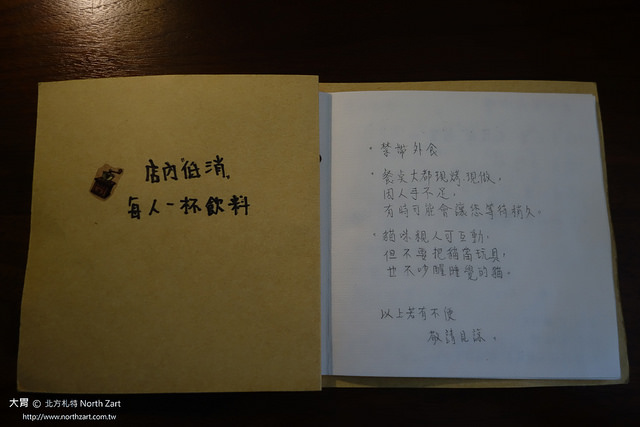 店內低消,
每人一杯飲料
・禁帶外食
・餐点大都現烤現做,
因人手不足,
有時可能會讓您等待稍久。
・貓咪親人可互動,
但不要把貓當玩具,
也不吵醒睡覺的貓。
以上若有不便
敬請見諒。
大胃 © 北方札特 North Zart
http://www.northzart.com.tw